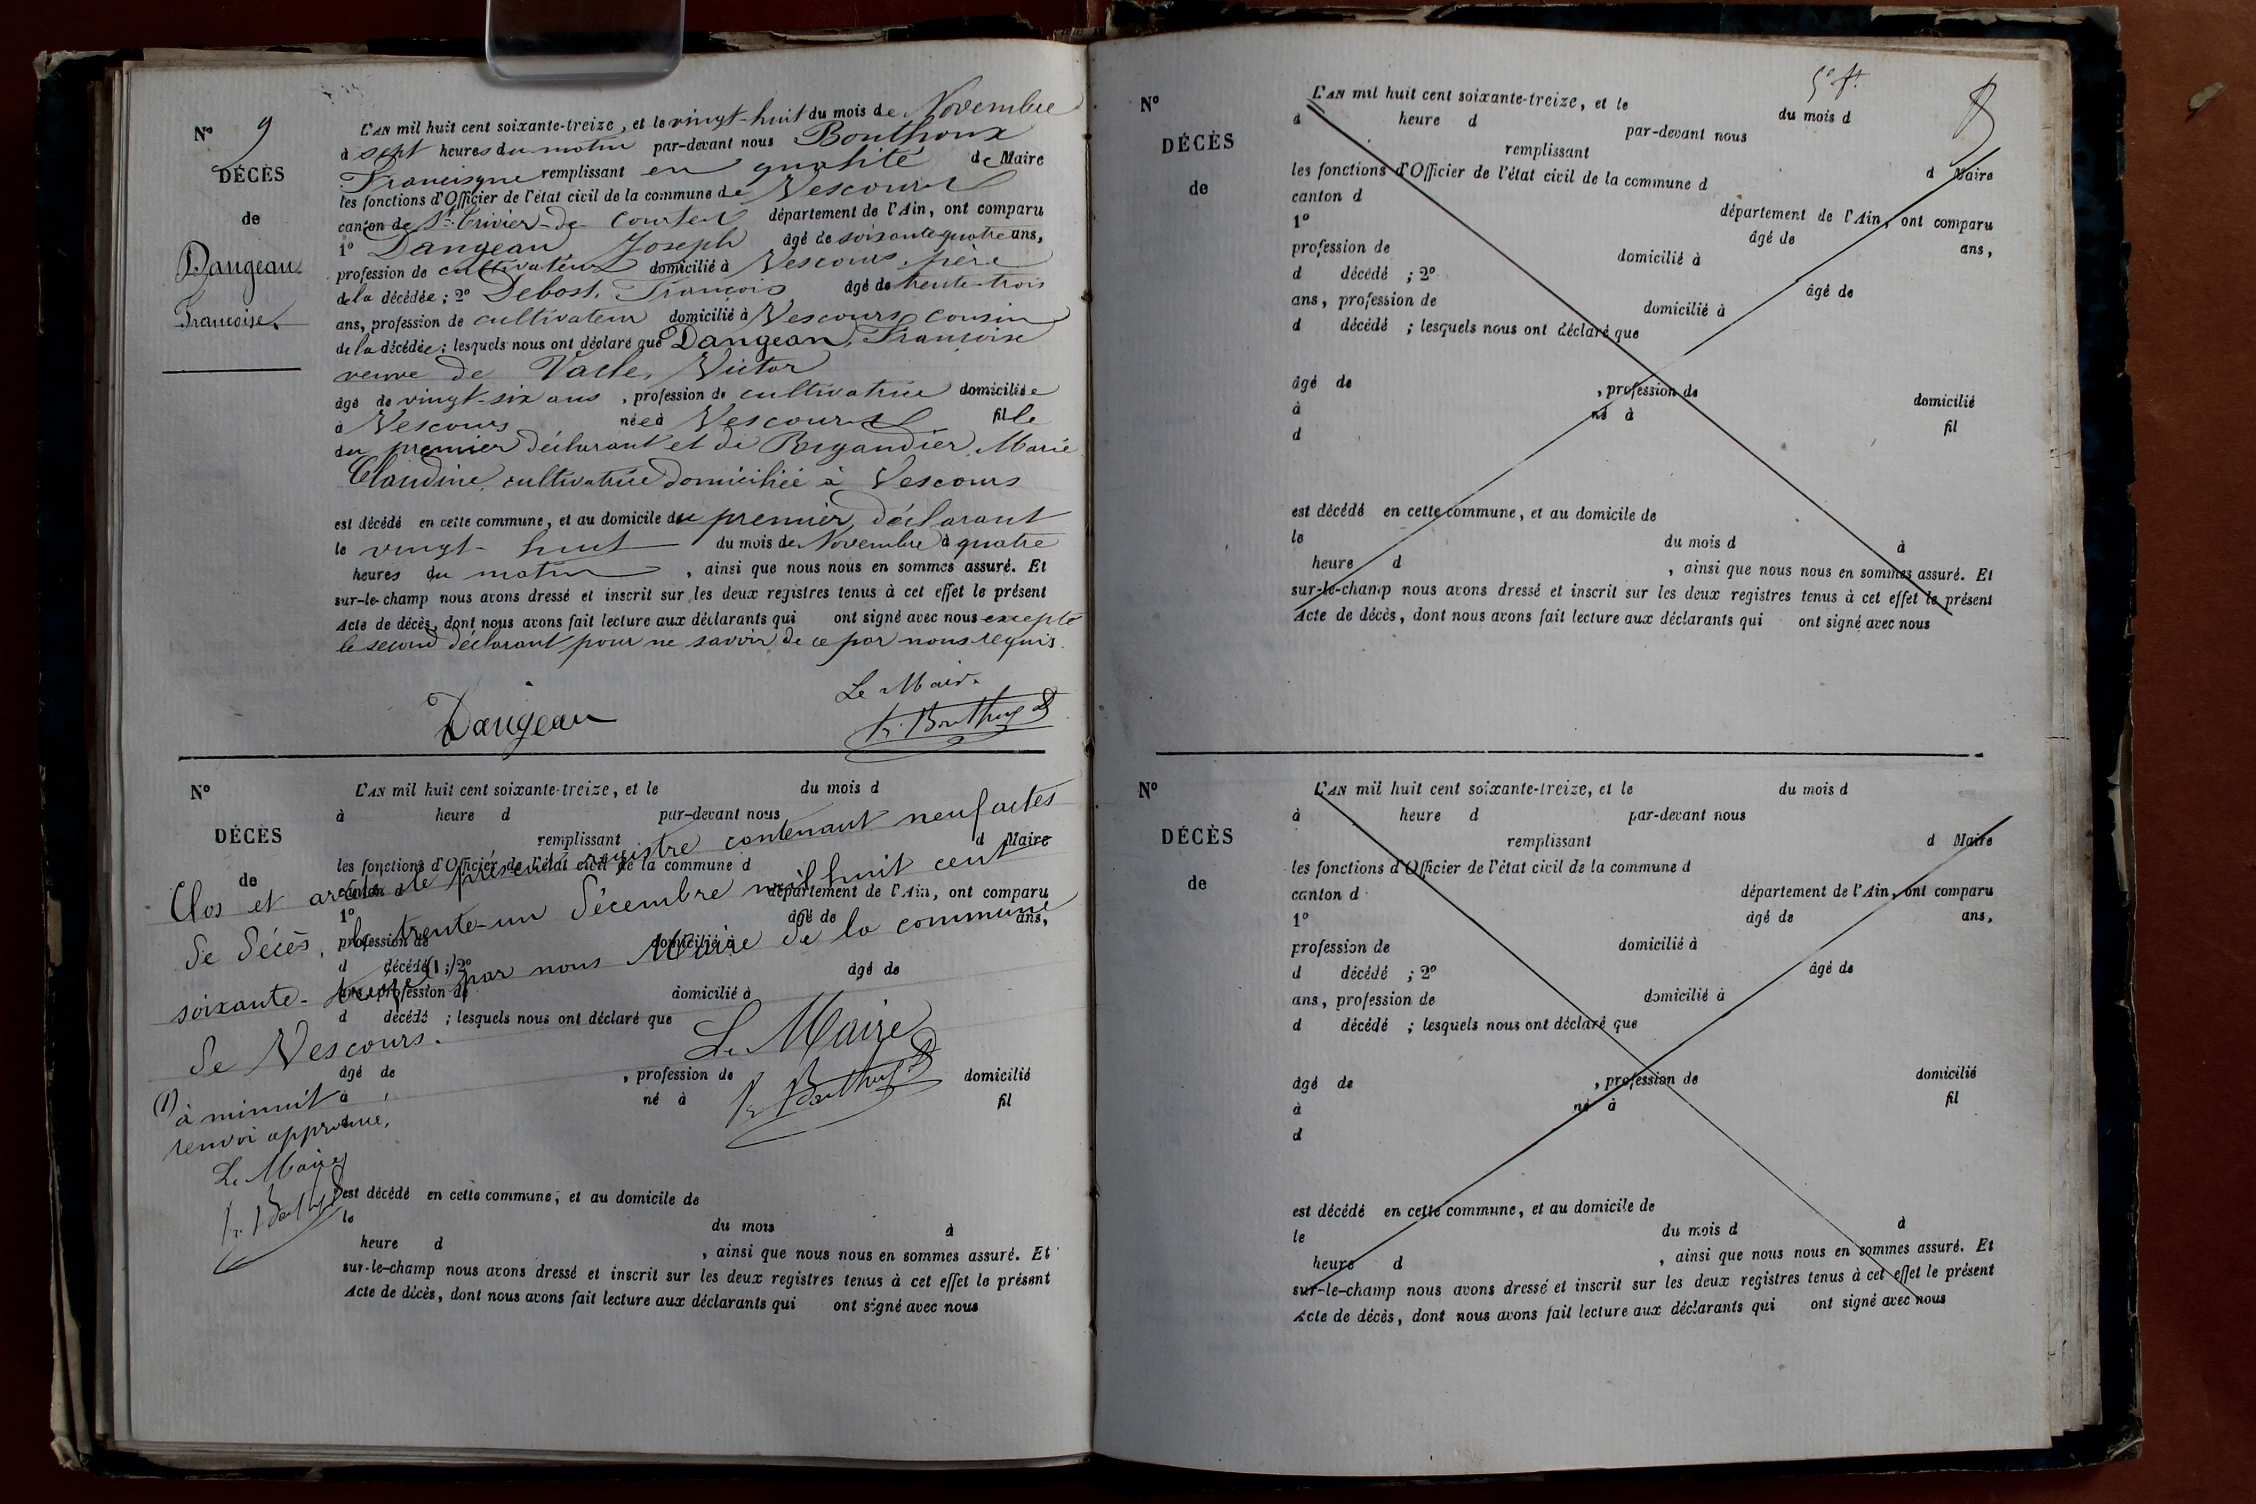 N° 9
DÉCÈS
de
Dangeau
Francoise
L'AN mil huit cent soixante-treize, et le vingt-huit du mois de Novembre
à sept heures du matin par-devant nous Bouthoux
remplissant en qualité de Maire
les fonctions d'Officier de l'état civil de la commune de Vescours
canton de St Trivier-de-Courtes département de l'Ain, ont comparu
1° Dangeau Joseph âgé de soixante quatre ans,
profession de cultivateur domicilié à Vescours, père
de la décédée; 2° Debost, François âgé de trente-trois
ans, profession de cultivateur domicilié à Vescours cousin
de la décédée; lesquels nous ont déclaré que Dangeau, Françoise
veuve de Victor
âgé de vingt-six ans, profession de cultivatrice domiciliée
à Vescours née à Vescours fille
du premier déclarant et de Marie
Claudine, cultivatrice domiciliée à Vescours
est décédé en cette commune, et au domicile du premier déclarant
le vingt-huit du mois de Novembre à quatre
heures du matin, ainsi que nous nous en sommes assuré. Et
sur-le-champ nous avons dressé et inscrit sur les deux registres tenus à cet effet le présent
Acte de décès, dont nous avons fait lecture aux déclarants qui ont signé avec nous excepté
le second déclarant pour ne savoir de ce par nous requis.
Le Maire
Dangeau
N°
DÉCÈS
de
L'AN mil huit cent soixante-treize, et le du mois d
à heure d par-devant nous
remplissant d Maire
les fonctions d'Officier de l'état civil de la commune d
canton d département de l'Ain, ont comparu
1° âgé de ans,
profession de domicilié à
d décédé ; 2° âgé de
ans, profession de domicilié à
d décédé ; lesquels nous ont déclaré que
âgé de , profession de domicilié
à né à fil
d
Clos et arrêté le présent registre contenant neuf actes
de décès, le trente-un décembre mil huit cent
soixante-treize (1) par nous Maire de la commune
de Vescours.
Le Maire
(1) à minuit
renvoi approuvé,
Le Maire
est décédé en cette commune, et au domicile de
le du mois à
heure d , ainsi que nous nous en sommes assuré. Et
sur-le-champ nous avons dressé et inscrit sur les deux registres tenus à cet effet le présent
Acte de décès, dont nous avons fait lecture aux déclarants qui ont signé avec nous
N°
DÉCÈS
de
L'AN mil huit cent soixante-treize, et le du mois d
à heure d par-devant nous
remplissant d Maire
les fonctions d'Officier de l'état civil de la commune d
canton d département de l'Ain, ont comparu
1° âgé de ans,
profession de domicilié à
d décédé ; 2° âgé de
ans, profession de domicilié à
d décédé ; lesquels nous ont déclaré que
âgé de , profession de domicilié
à né à fil
d
est décédé en cette commune, et au domicile de
le du mois d à
heure d , ainsi que nous nous en sommes assuré. Et
sur-le-champ nous avons dressé et inscrit sur les deux registres tenus à cet effet le présent
Acte de décès, dont nous avons fait lecture aux déclarants qui ont signé avec nous
N°
DÉCÈS
de
L'AN mil huit cent soixante-treize, et le du mois d
à heure d par-devant nous
remplissant d Maire
les fonctions d'Officier de l'état civil de la commune d
canton d département de l'Ain, ont comparu
1° âgé de ans,
profession de domicilié à
d décédé ; 2° âgé de
ans, profession de domicilié à
d décédé ; lesquels nous ont déclaré que
âgé de , profession de domicilié
à né à fil
d
est décédé en cette commune, et au domicile de
le du mois d à
heure d , ainsi que nous nous en sommes assuré. Et
sur-le-champ nous avons dressé et inscrit sur les deux registres tenus à cet effet le présent
Acte de décès, dont nous avons fait lecture aux déclarants qui ont signé avec nous